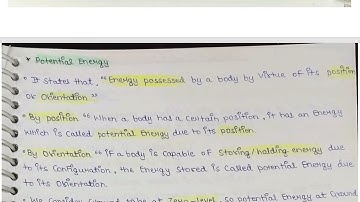 * Potential Energy
• It states that, "Energy possessed by a body by virtue of its position
or Orientation."
• By position " When a body has a certain position, it has an Energy
which is Called potential Energy due to its position.
• By Orientation " if a body is Capable of Storing/holding energy due
to its Configuration, the Energy Stored is Called potential Energy due
to its Orientation.
to be at Zero-level, so potential Energy at Ground